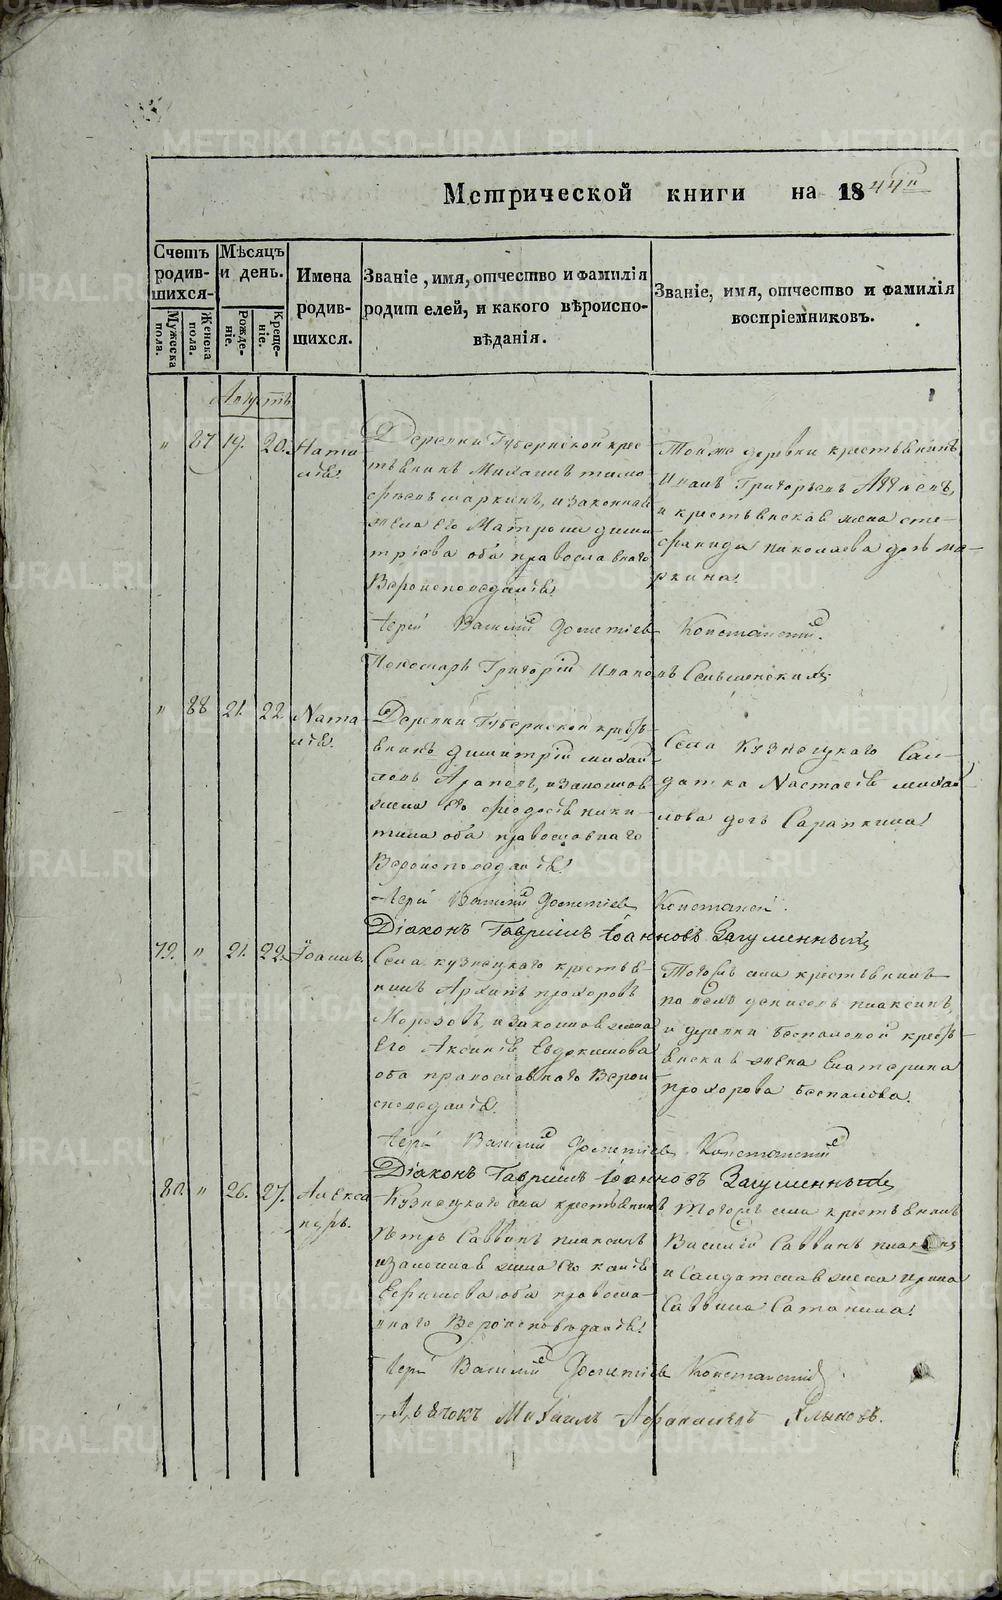 Метрической книги на 1844й
Счетъ родившихся.
Мужеска пола.
Женска пола.
Мѣсяцъ и день.
Рожденіе.
Крещеніе.
Имена родившихся.
Званіе, имя, отчество и фамилія родителей, и какого вѣроисповѣданія.
Званіе, имя, отчество и фамилія воспріемниковъ.
Августъ
" 87 19. 20. Ната
лія.
Деревни Губернской крес
тьянинъ Михаилъ тимо
фѣевъ маркинъ, и законная
жена его Матрона дими
тріева оба православнаго
Вероисповеданія.
Той же деревни крестьянинъ
Иванъ Григорьевъ
и крестьянская жена сте-
фанида николаева дочь ма-
ркина.
Іерей Василий Констанскій.
Пономарь Григорій Ивановъ
" 88 21. 22. Ната
лія.
Деревни Губернской кресть
янинъ димитрій михай
ловъ Араповъ, и законная
жена его феодосія ники-
тина оба православнаго
Вероисповеданія.
Села Кузнецкаго Сол-
датка Настасія михай
лова дочь Сарапкина.
Іерей Василий
Діаконъ Гавриилъ Іоанновъ Загуменныхъ
79. " 21. 22. Іоаннъ.
Села кузнецкаго крестья-
нинъ Архипъ прохоровъ
Морозовъ, и законная жена
его Аксинія Евдокимова
оба православнаго Верои
споведанія.
Тогожъ села крестьянинъ
денисовъ плаксинъ,
и деревни Беспаловой кресть
янская жена Екатерина
прохорова Беспалова.
Іерей Василий Констанскій
Діаконъ Гавриилъ Іоанновъ Загуменныхъ
80. " 26. 27. Алекса
ндръ.
Кузнецкаго села крестьянинъ
Петръ Саввинъ плаксинъ
и законная жена его
Ефимова оба правосла-
внаго Вероисповѣданія.
Тогожъ села крестьянинъ
Василій Саввинъ плаксинъ
и Солдатская жена Ирина
Саввина Сатанина.
Іерей Василий Констанскій
Михаилъ Афанасьевъ
METRIKI.GASO-URAL.RU